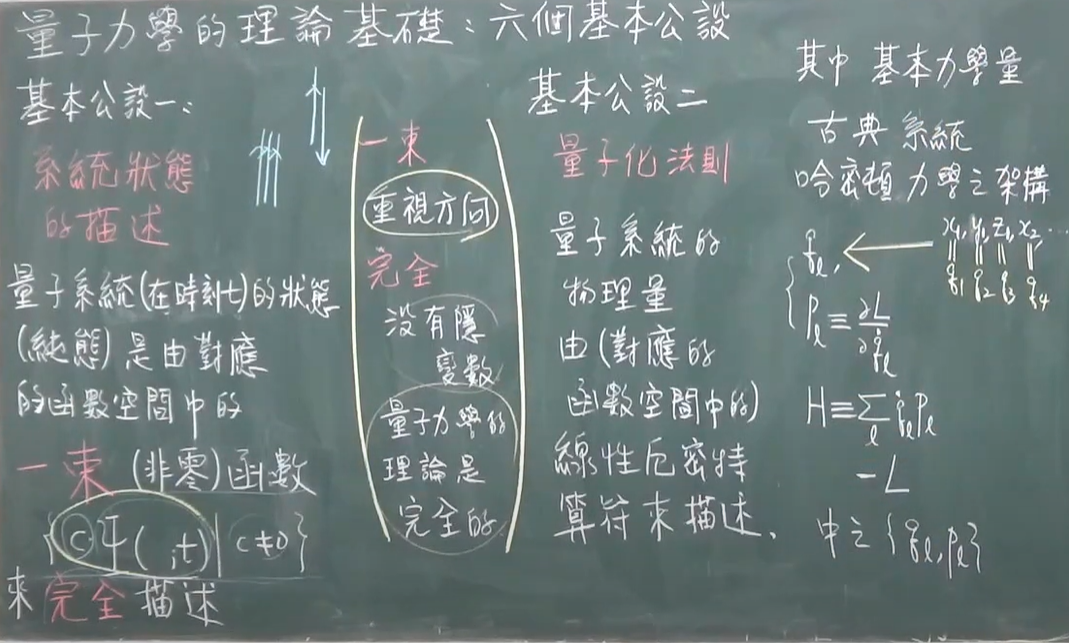 量子力學的理論基礎：六個基本公設
基本公設一：
系統狀態
的描述
量子系統(在時刻t)的狀態
(純態)是由對應
的函數空間中的
一束(非零)函數
{cΨ( ,t)|c≠0}
來完全描述
一束
重視方向
完全
沒有隱
變數
量子力學的
理論是
完全的
基本公設二
量子化法則
量子系統的
物理量
由(對應的
函數空間中的)
線性厄密特
算符來描述.
其中 基本力學量
古典系統
哈密頓力學之架構
x₁, y₁, z₁, x₂, ...
q₁ q₂ q₃ q₄
{ qₗ, ←
pₗ ≡ ∂L/∂q̇ₗ
H ≡ Σₗ q̇ₗpₗ
- L
中之{qₗ, pₗ}